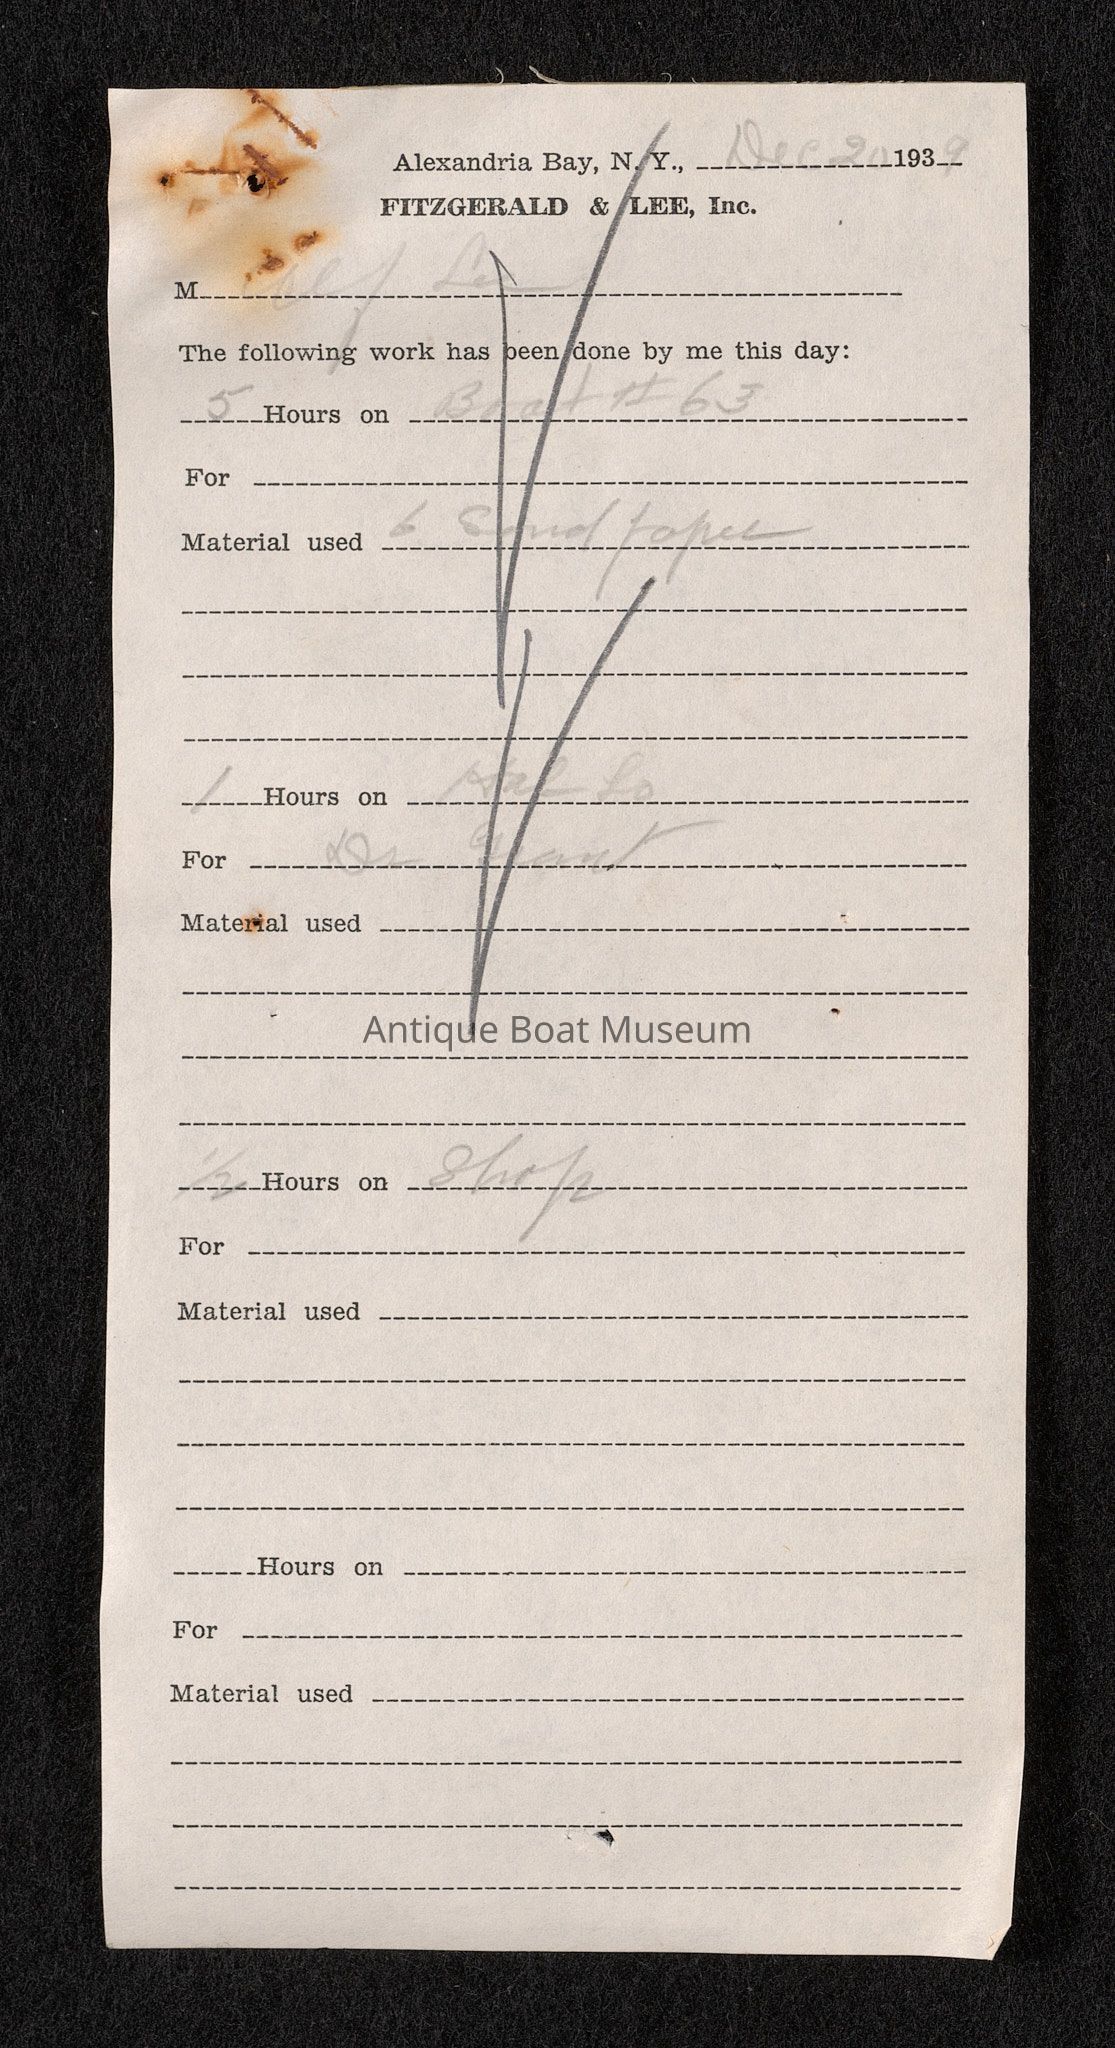 Alexandria Bay, N. Y., Dec 20 1939
FITZGERALD & LEE, Inc.
M Lee
The following work has been done by me this day:
5 Hours on Boat # 63
For
Material used 6 Sand paper
1 Hours on
For Dr Grant
Material used
Antique Boat Museum
1/2 Hours on Shop
For
Material used
Hours on
For
Material used